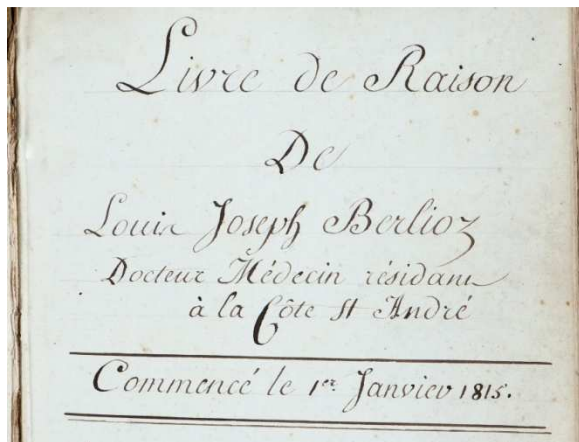 Livre de Raison
De
Louis Joseph Berlioz
Docteur Médecin résidant
à la Côte St André
Commencé le 1er Janvier 1815.